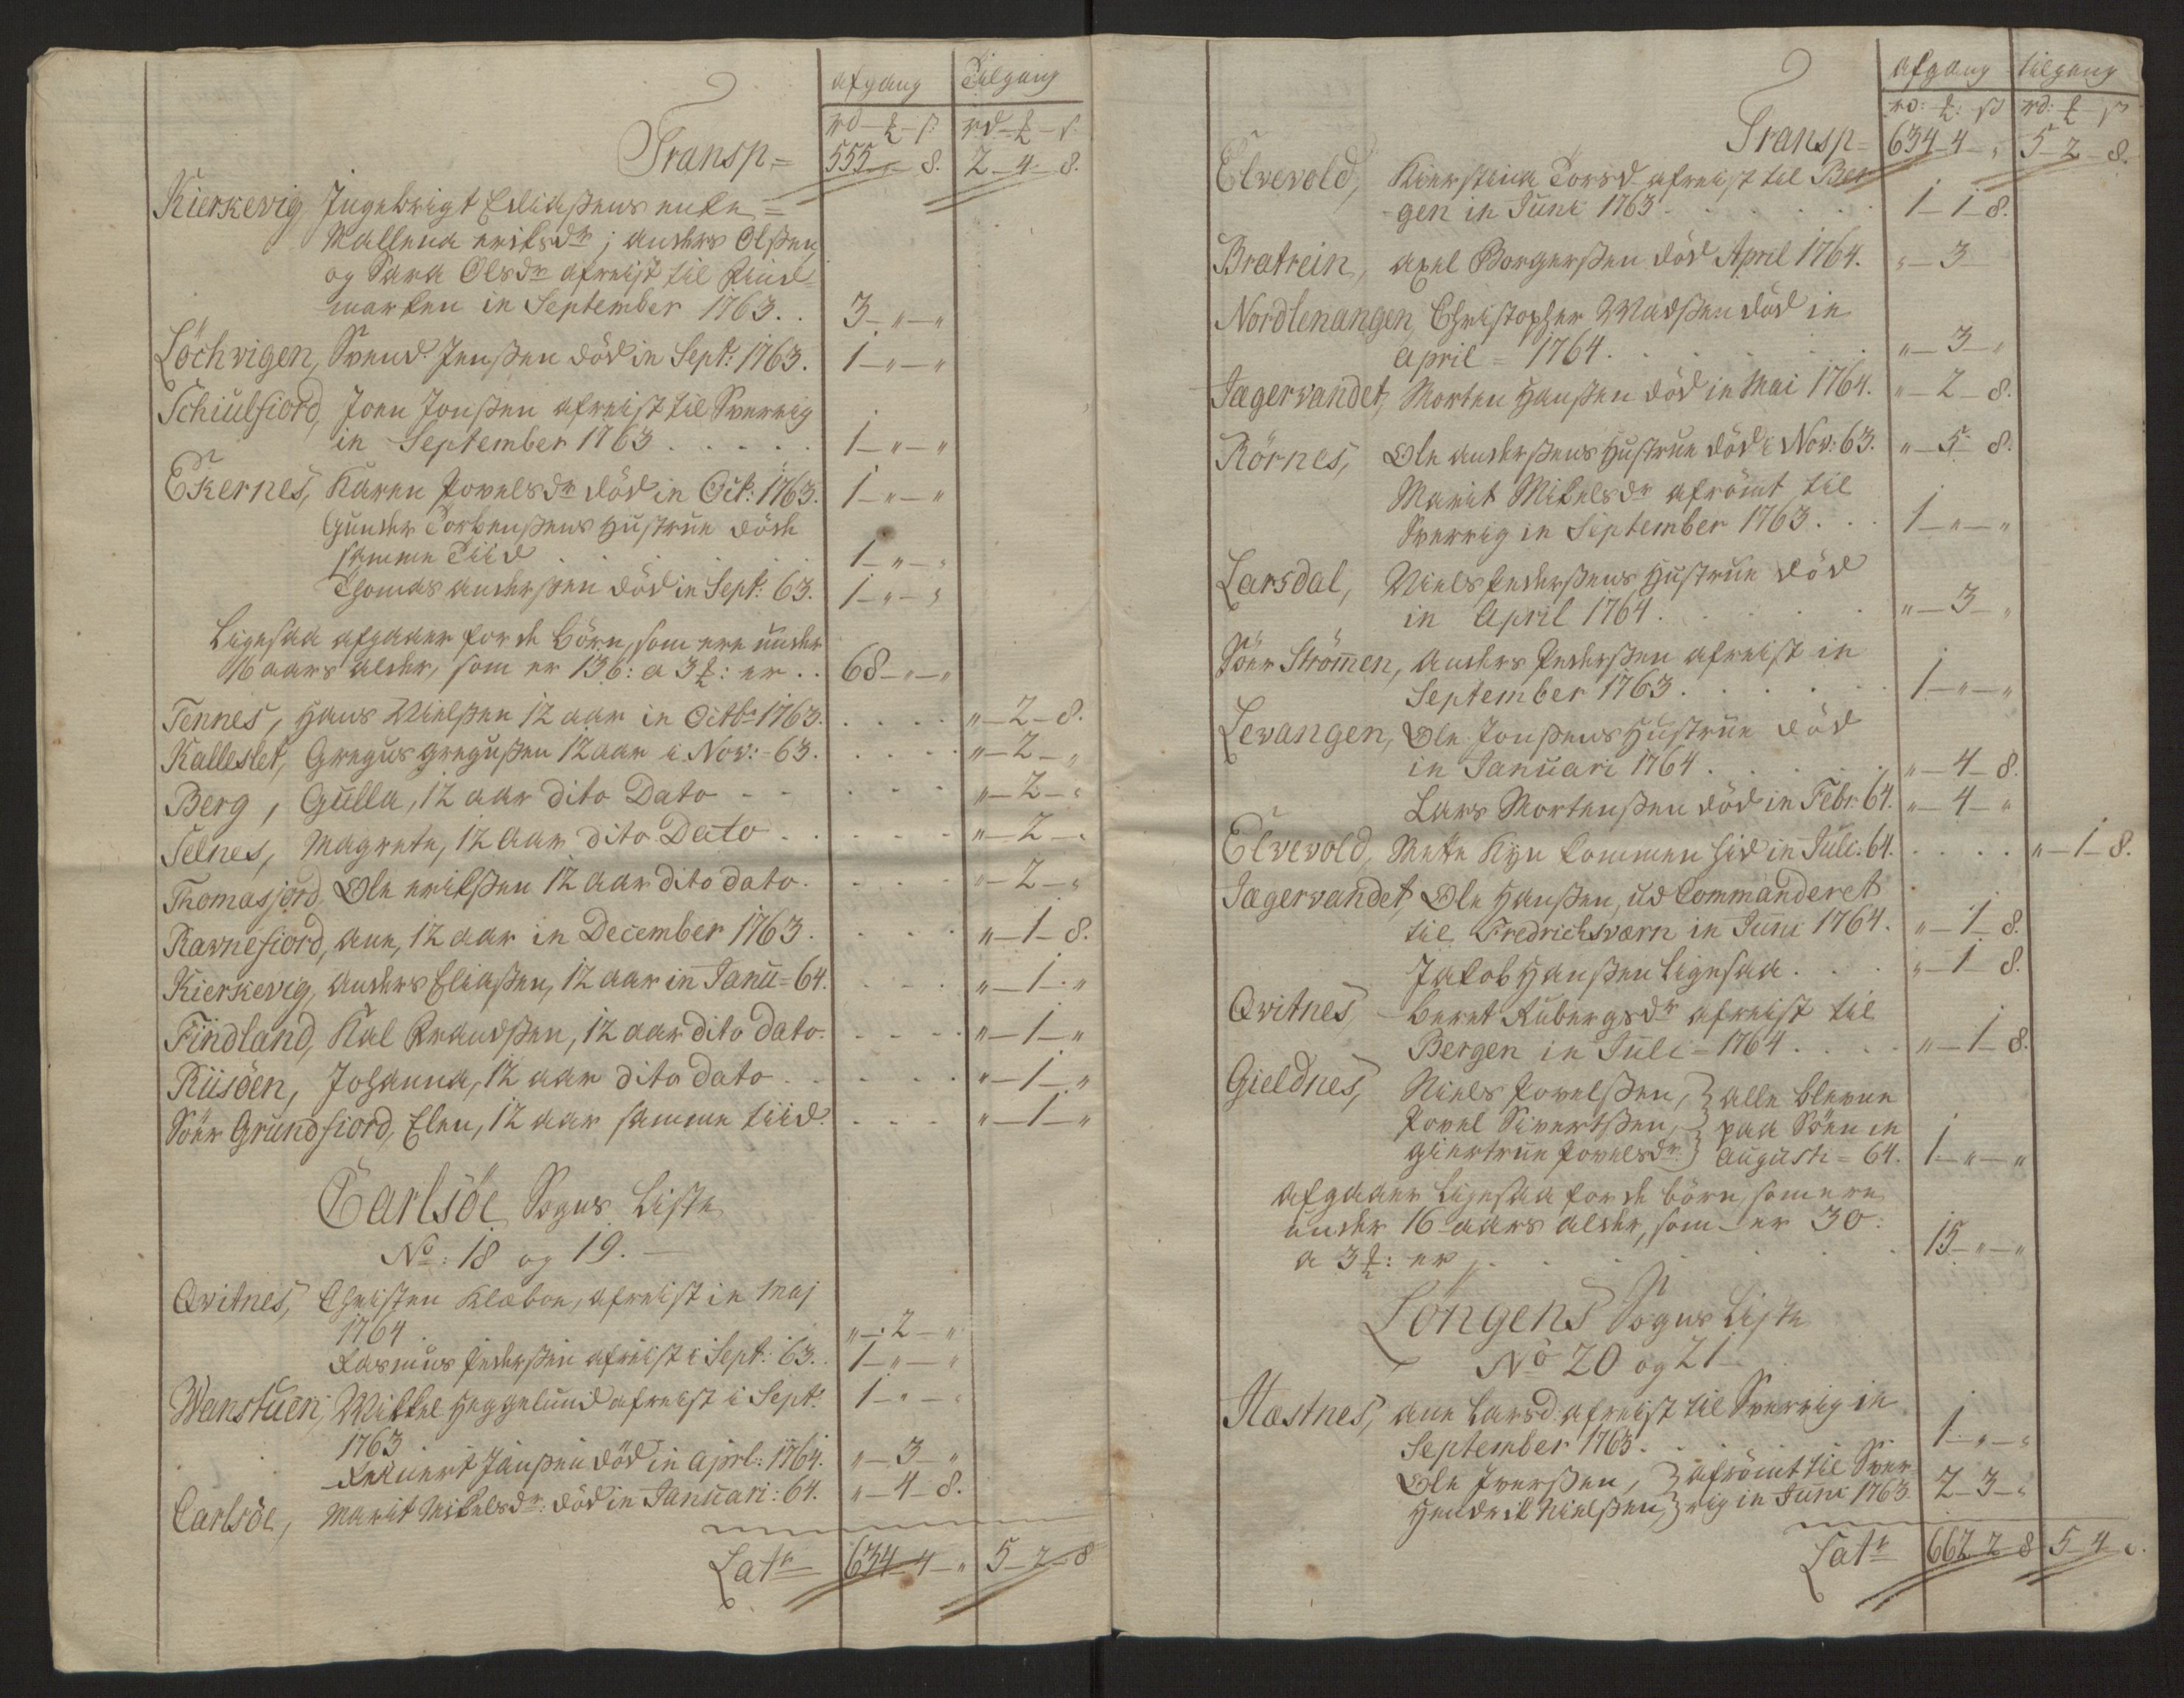 afgang Tilgang
rd - ₰ - s: rd - ₰ - s.
Transp = 555 - „ - 8. 2 - 4 - 8.
Kierkevig, Ingebrigt Eeliaßens enke =
Mallena eriksdr; anders Olßen,
og Sara Olsdr afreist til Find-
marken in September 1763. . 3 - „ - „
Löchvigen, Svend Jenßen död in Sept: 1763. 1 - „ - „
Schiulfiord, Joen Jonßen afreist til Sverrig
in September 1763 . . . . . 1 - „ - „
Ekernes, Karen Povelsdr död in Oct: 1763. 1 - „ - „
Gunder Torbenßens Hustrue döde
samme Tiid . . . . . 1 - „ - „
Thomas anderßen död in Sept: 63. 1 - „ - „
Ligesaa afgaaer for de börn, som ere under
16 aars alder, som er 136: a 3 ₰: er . . 68 - „ - „
Tennes, Hans Nielßen 12 aar in Octbr 1763. . . . . „ - 2 - 8.
Kalleslet, Gregus Gregußen 12 aar i Nov: - 63. . . . . „ - 2 - „
Berg, Gulla, 12 aar dito Dato - - . . . „ - 2 - „
Selnes, Magrete, 12 aar dito Dato . . . . . „ - 2 - „
Thomasjord, Ole erikßen 12 aar dito dato. . . . „ - 2 - „
Ravnefiord, ane, 12 aar in December 1763. . . . „ - 1 - 8.
Kierkevig, anders Eliaßen, 12 aar in Janu = 64. . . . „ - 1 - „
Findland, Kal Frandßen, 12 aar dito dato. . . . „ - 1 - „
Riisöen, Johanna, 12 aar dito dato . . . . . „ - 1 - „
Söer Grundfiord, Elen, 12 aar samme tiid. . . . „ - 1 - „
Carlsöe Sogns Liste
No: 18 og 19. —
Qvitnes, Christen Klæboe, afreist in Maj
1764 . „ - 2 - „
Rasmus Pederßen afreist i Sept: 63. 1 - „ - „
Wanstuen, Mikkel Heggelund afreist i Sept:
1763 . 1 - „ - „
Leenert Janßen död in Aprl: 1764. „ - 3 - „
Carlsöe, Marit Mikelsdr: död in Januari: 64. „ - 4 - 8.
Latr 634 - 4 - „ 5 - 2 - 8
afgang tilgang
rd: ₰: s rd: ₰ - s
Transp = 634 - 4 - „ 5 - 2 - 8.
Elvevold, Kierstina Torsd afreist til Ber-
gen in Juni 1763 . . . . . . 1 - 1 - 8.
Bratrein, axel Borgerßen död April 1764. „ - 3
Nordlenangen, Christopher Madßen död in
April = 1764. . . . . . „ - 3 - „
Jægervandet, Morten Hanßen död in Mai 1764. „ - 2 - 8.
Rörnes, Ole anderßens Hustrue död i Nov: 63. „ - 5 8.
Marit Mikelsdr afrömt til
Sverrig in September 1763. . . 1 - „ - „
Larsdal, Niels Pederßens Hustrue död
in April 1764. . . . . . „ - 3 - „
Söer Strömen, Anders Pederßen afreist in
September 1763. . . . . . 1 - „ - „
Levangen, Ole Jonßens Hustrue död
in Januari 1764 . . . . . . „ - 4 - 8.
Lars Mortenßen död in Febr: 64. „ - 4 - „
Elvevold, Mette Kyn kommen hid in Juli: 64. . . . . „ - 1 - 8.
Jægervandet, Ole Hanßen, ud Commanderet
til Fredrichsværn in Juni 1764. „ - 1 - 8.
Jakob Hanßen ligesaa . . . „ - 1 8.
Qvitnes, Beret Rubergsdr afreist til
Bergen in Juli = 1764 . . . . „ - 1 - 8.
Gieldnes, Niels Povelßen, } alle bleven
Povel Sivertßen, } paa Söen in
giertrue Povelsdr } Augusti = 64. 1 - „ - „
Afgaaer ligesaa for de börn, som ere
under 16 aars alder, som er 30:
a 3 ₰: er . . . . . . 15 - „ - „
Löngens Sogns Liste
No 20 og 21
Næstnes, ane Larsd: afreist til Sverrig in
September 1763. . . . 1 - „ - „
Ole Iverßen, } afrömt til Sver-
Hendrik Nielßen, } rig in Juni 1763 2 - 3 - „
Latr 662 2 8 5 - 4 - „.